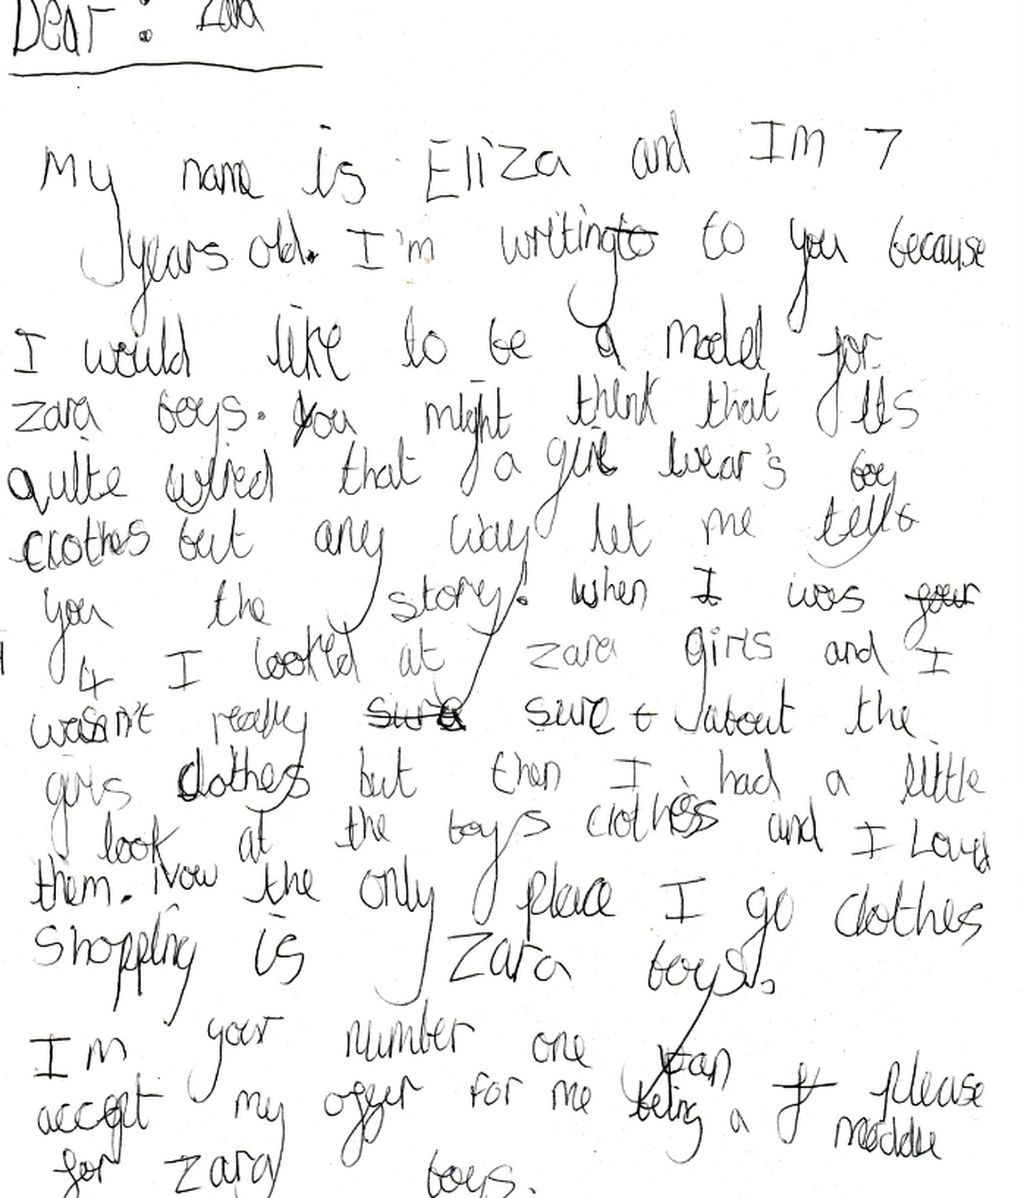 Dear : Zara
My name is Eliza and Im 7
years old. I'm writing to to you because
I would like to be a model for
zara boys. You might think that its
quite wired that a girl wear's boy
clothes but any way let me tell
you the story. when I was your
4 I looked at zara girls and I
wasn't really sure sure t about the
girls clothes but then I had a little
look at the boys clothes and I Loved
them. Now the only place I go clothes
shopping is Zara boys.
Im your number one fan f please
accept my offer for me being a moddle
for zara boys.